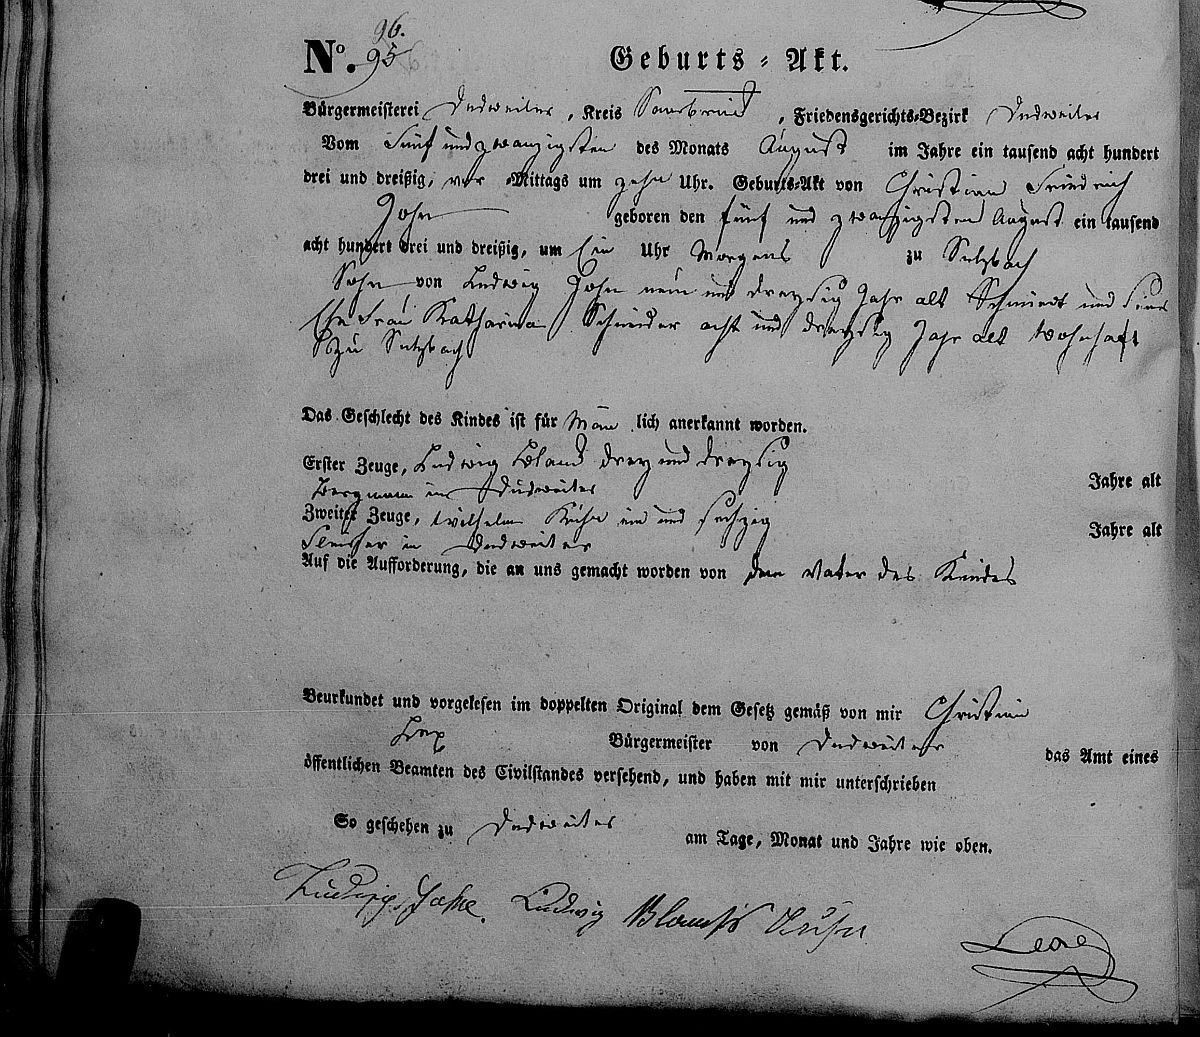 96.
No. 95
Geburts-Akt.
Bürgermeisterei Dudweiler, Kreis Saarbrück, Friedensgerichts-Bezirk Dudweiler
Vom Fünf und zwanzigsten des Monats August im Jahre ein tausend acht hundert
drei und dreißig, vor Mittags um zehn Uhr. Geburts-Akt von Christian Friedrich
John geboren den fünf und zwanzigsten August ein tausend
acht hundert drei und dreißig, um Ein Uhr Morgens zu Sulzbach
Sohn von Ludwig John neun und dreyßig Jahr alt Schmidt und seine
Ehe Frau Katharina Schneider acht und dreyßig Jahr alt wohnhaft
zu Sulzbach
Das Geschlecht des Kindes ist für Män lich anerkannt worden.
Erster Zeuge, Ludwig drey und dreyßig
Bergmann in Dudweiler Jahre alt
Zweiter Zeuge, Wilhelm Kuhn ein und sechzig
in Dudweiler Jahre alt
Auf die Aufforderung, die an uns gemacht worden von dem Vater des Kindes
Beurkundet und vorgelesen im doppelten Original dem Gesetz gemäß von mir Christian
Bürgermeister von Dudweiler das Amt eines
öffentlichen Beamten des Civilstandes versehend, und haben mit mir unterschrieben
So geschehen zu Dudweiler am Tage, Monat und Jahre wie oben.
Ludwig Ludwig